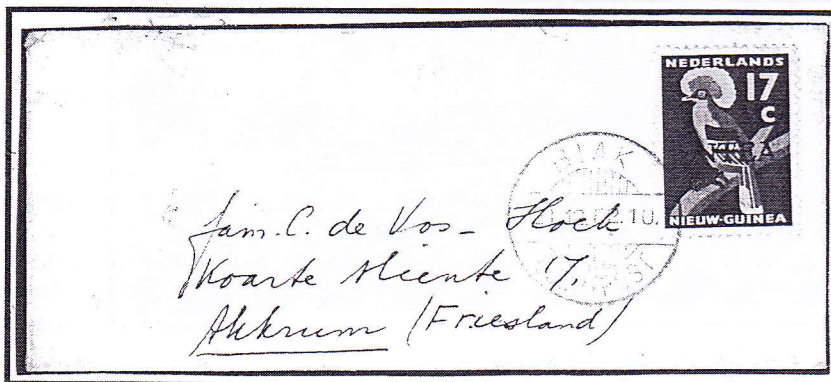 NEDERLANDS
17
C
NIEUW-GUINEA
BIAK
Fam. C. de Vos - Hoek
Koarte Miente 17,
Akkrum (Friesland)